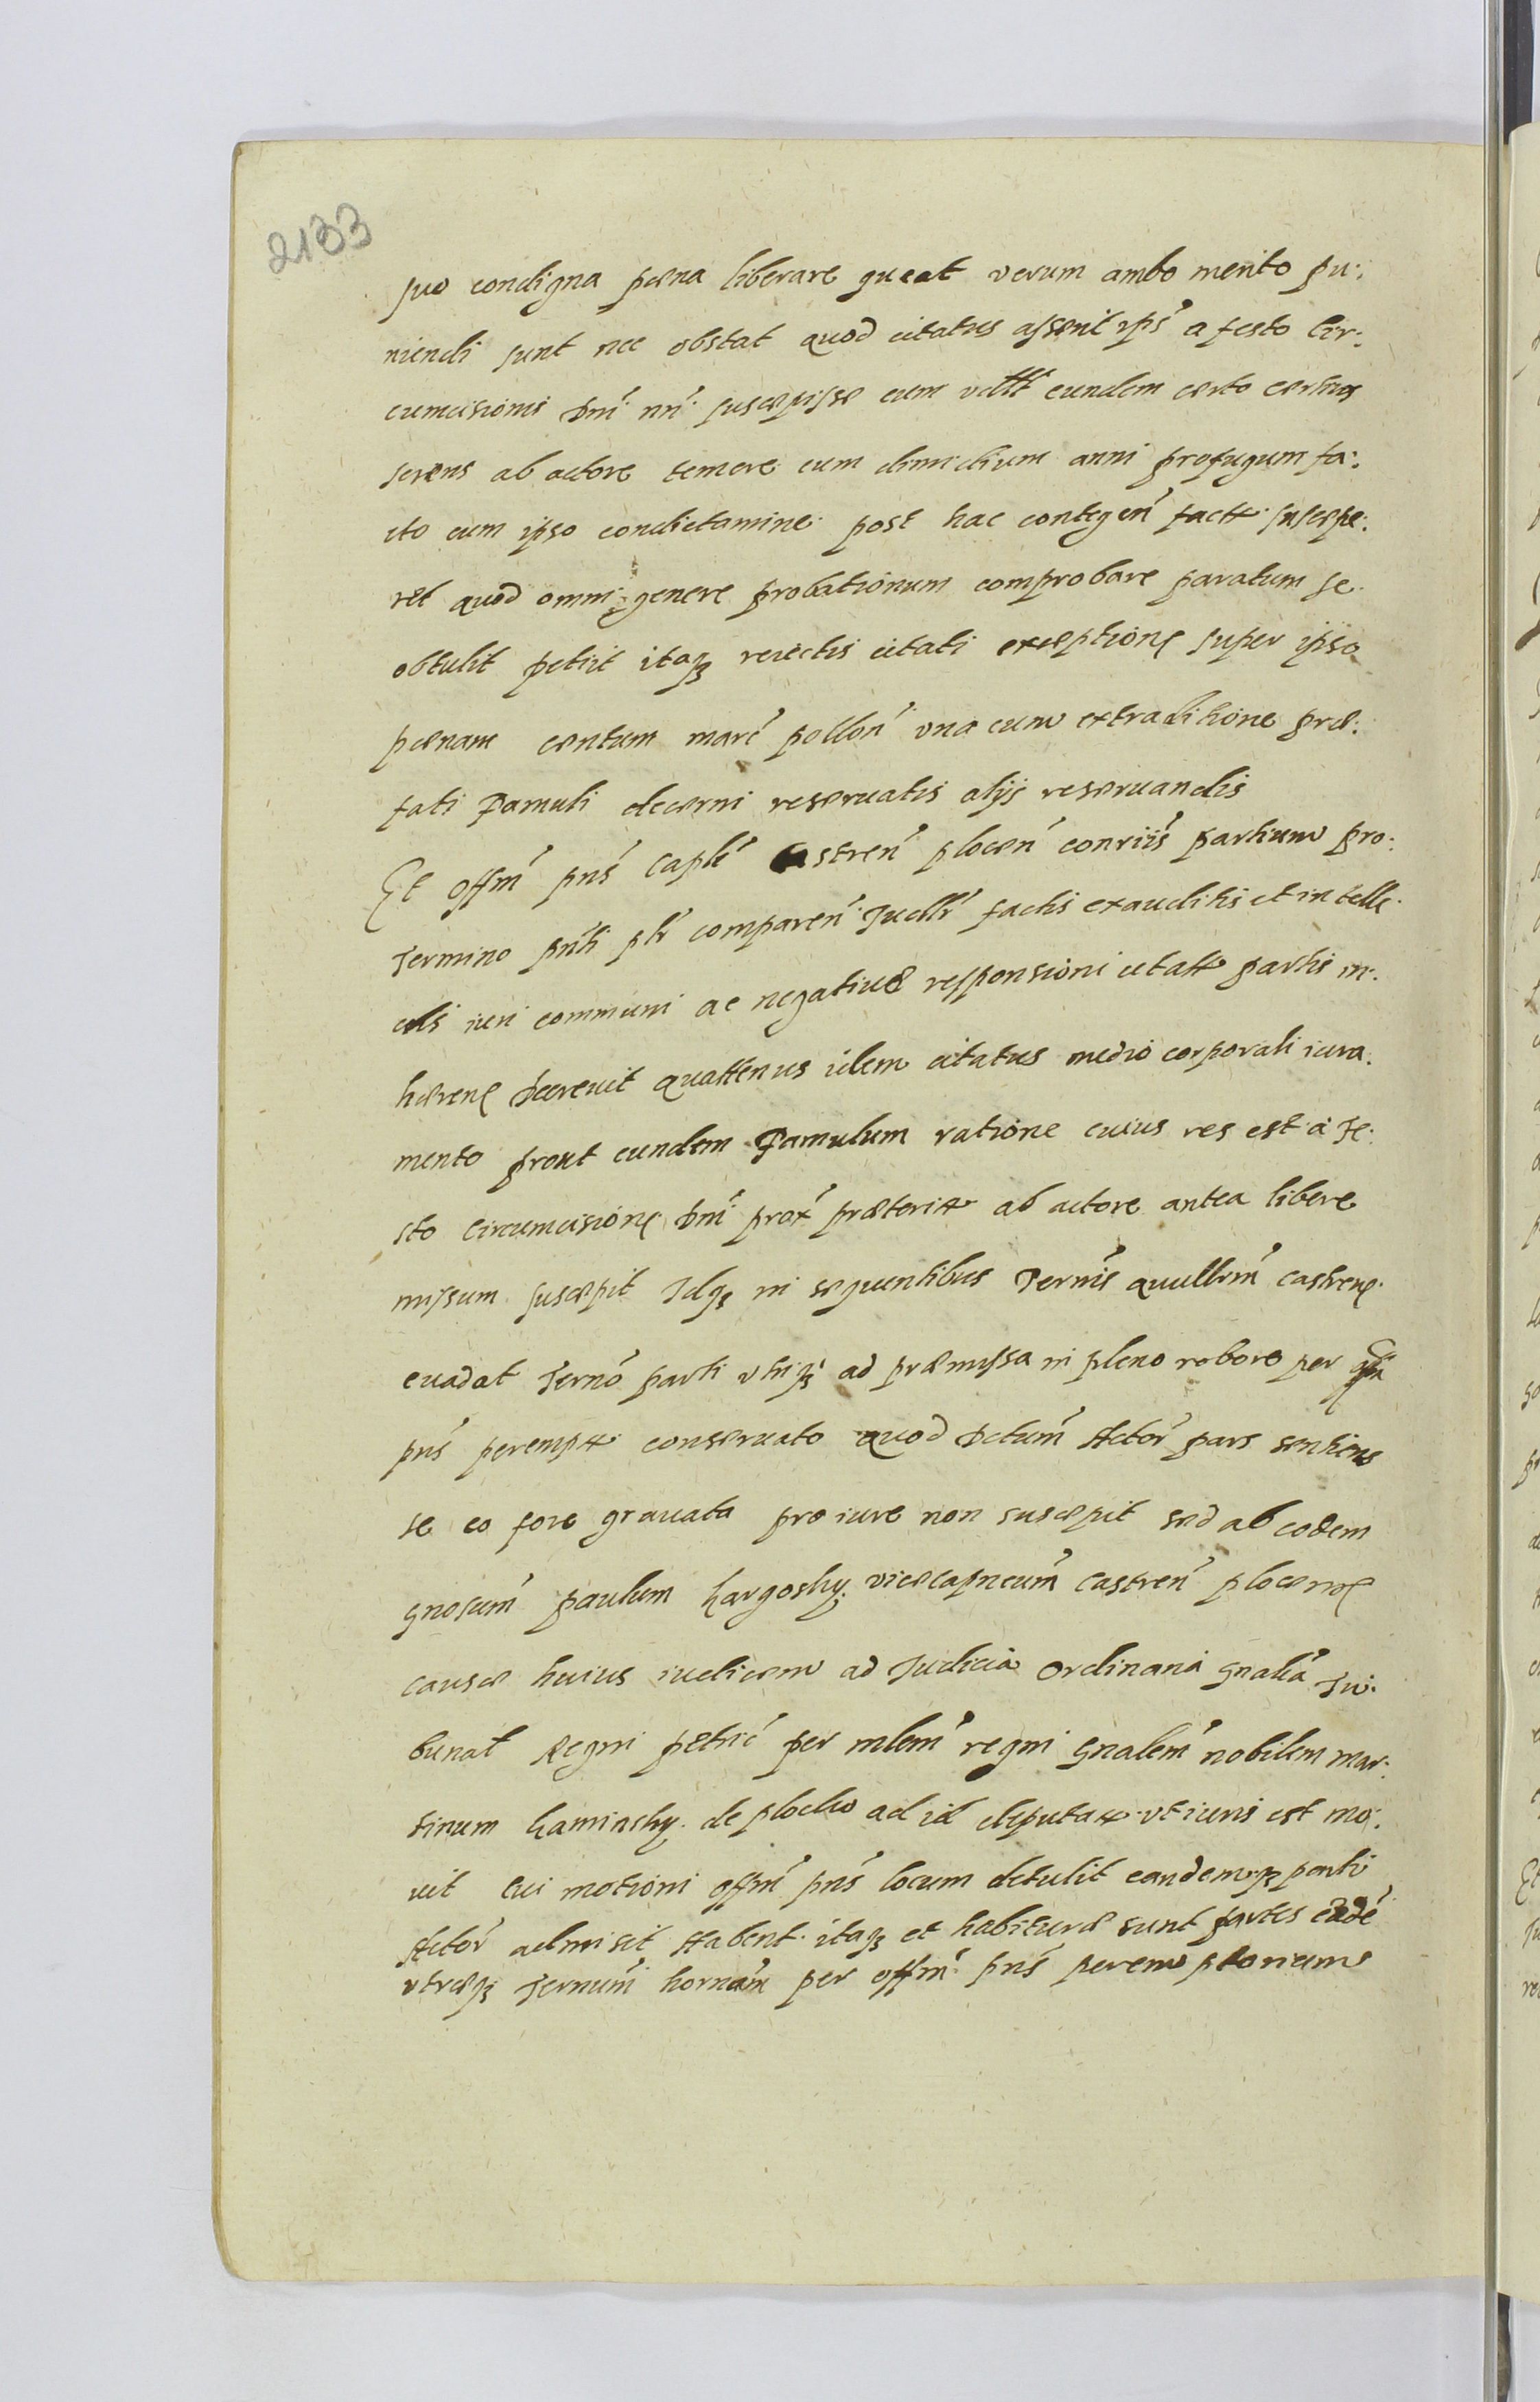 2133
suo condigna pœna liberare queat verum ambo merito pu:
niendi sunt nec obstat quod citatus asserit ips' a festo Cir:
cumcisionis Dni' nri' suscœpisse cum eundem cœrto cœrtius
serens ab actore temere cum dimidium anni profugum fa:
cto cum ipso condictamine post hac contegen' fact suscœpe:
rit quod omni genere probationum comprobare paratum se
obtulit petiit itaq3 reiectis citati exceptione super ipso
pœnam cœntum marc' pollon' vna cum extraditione prœ:
fati Famuli decœrni reseruatis alijs reseruandis
Et Offm' pns' Captl' Castren' plocen' conriis' partium pro:
Termino pnti ptr' comparen' Judlr' factis exauditis et intelle
ctis iuri communi ac negatiuœ responsioni citatt partis in:
hœren decreuit quattenus idem citatus medio corporali iura:
mento prout eundem Famulum ratione cuius res est a Fe:
sto Circumcisione Dni' prox' prœterit ab actore antea libere
missum suscœpit Idq3 in sequentibus Termis' quœrellrm' castren
euadat Terno' parti vtriq3 ad prœmissa in pleno robore per
pns' perempt conseruato quod Dctum' Actor' pars sentiens
se eo fore grauata pro iure non suscœpit sed ab eodem
gnosum' paulum Kargosky vicecapneum' Castren' plocens
causœ huius iudicem ad Judicia Ordinaria gnalia' Tri:
bunal Regni petric' per mlem' regni gnalem' nobilem mar:
tinum Kaminsky de plocko ad id deputat vt iuris est mo:
uit Cui motioni offm' pns' locum detulit eandemq3 parti
Actor' admisit Habent itaq3 et habiturœ sunt partes eade'
vtrœq3 Ternum' hornam' per offm' pns' peremptorium